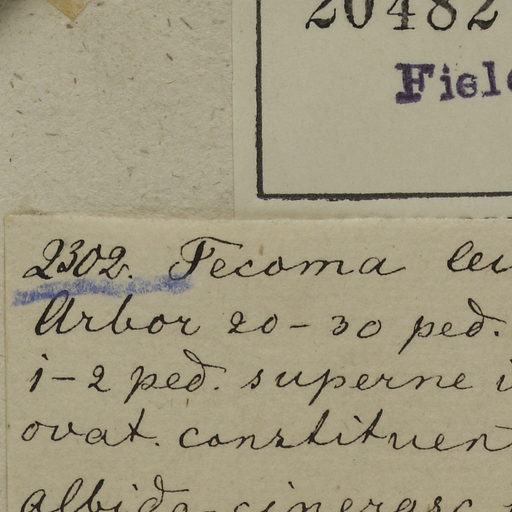 20482
Fiel
2302. Tecoma leu
Arbor 20-30 ped.
1-2 ped. superne i
ovat. constituen
albido-cinerasc.